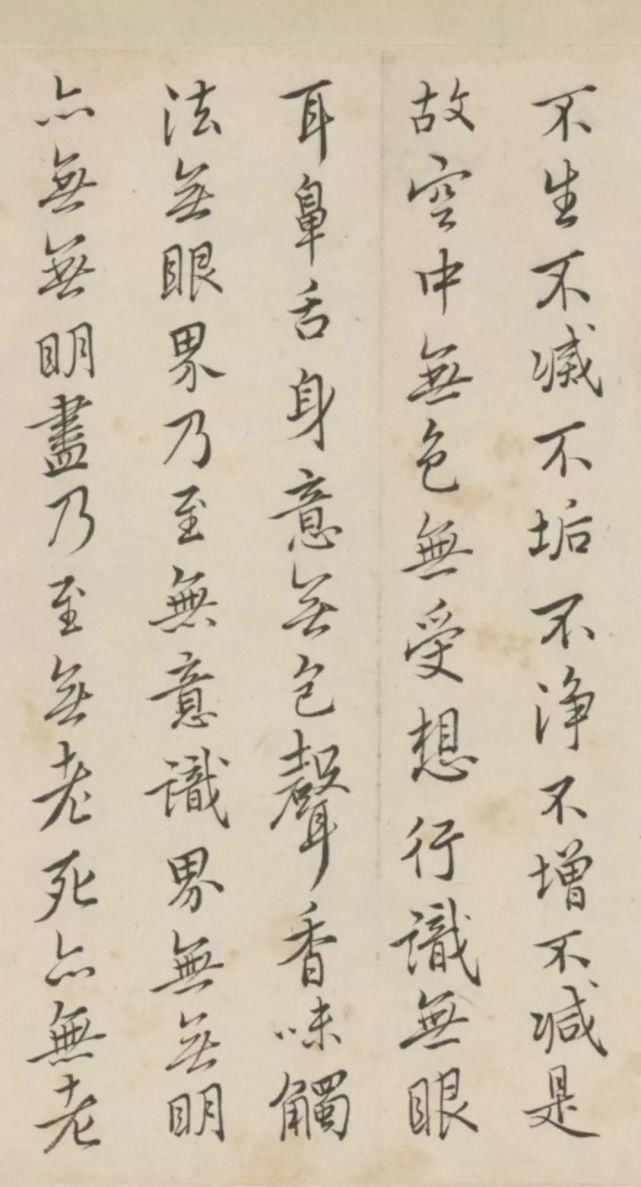 不生不滅不垢不淨不增不減是
故空中無色無受想行識無眼
耳鼻舌身意無色聲香味觸
法無眼界乃至無意識界無無明
亦無無明盡乃至無老死亦無老